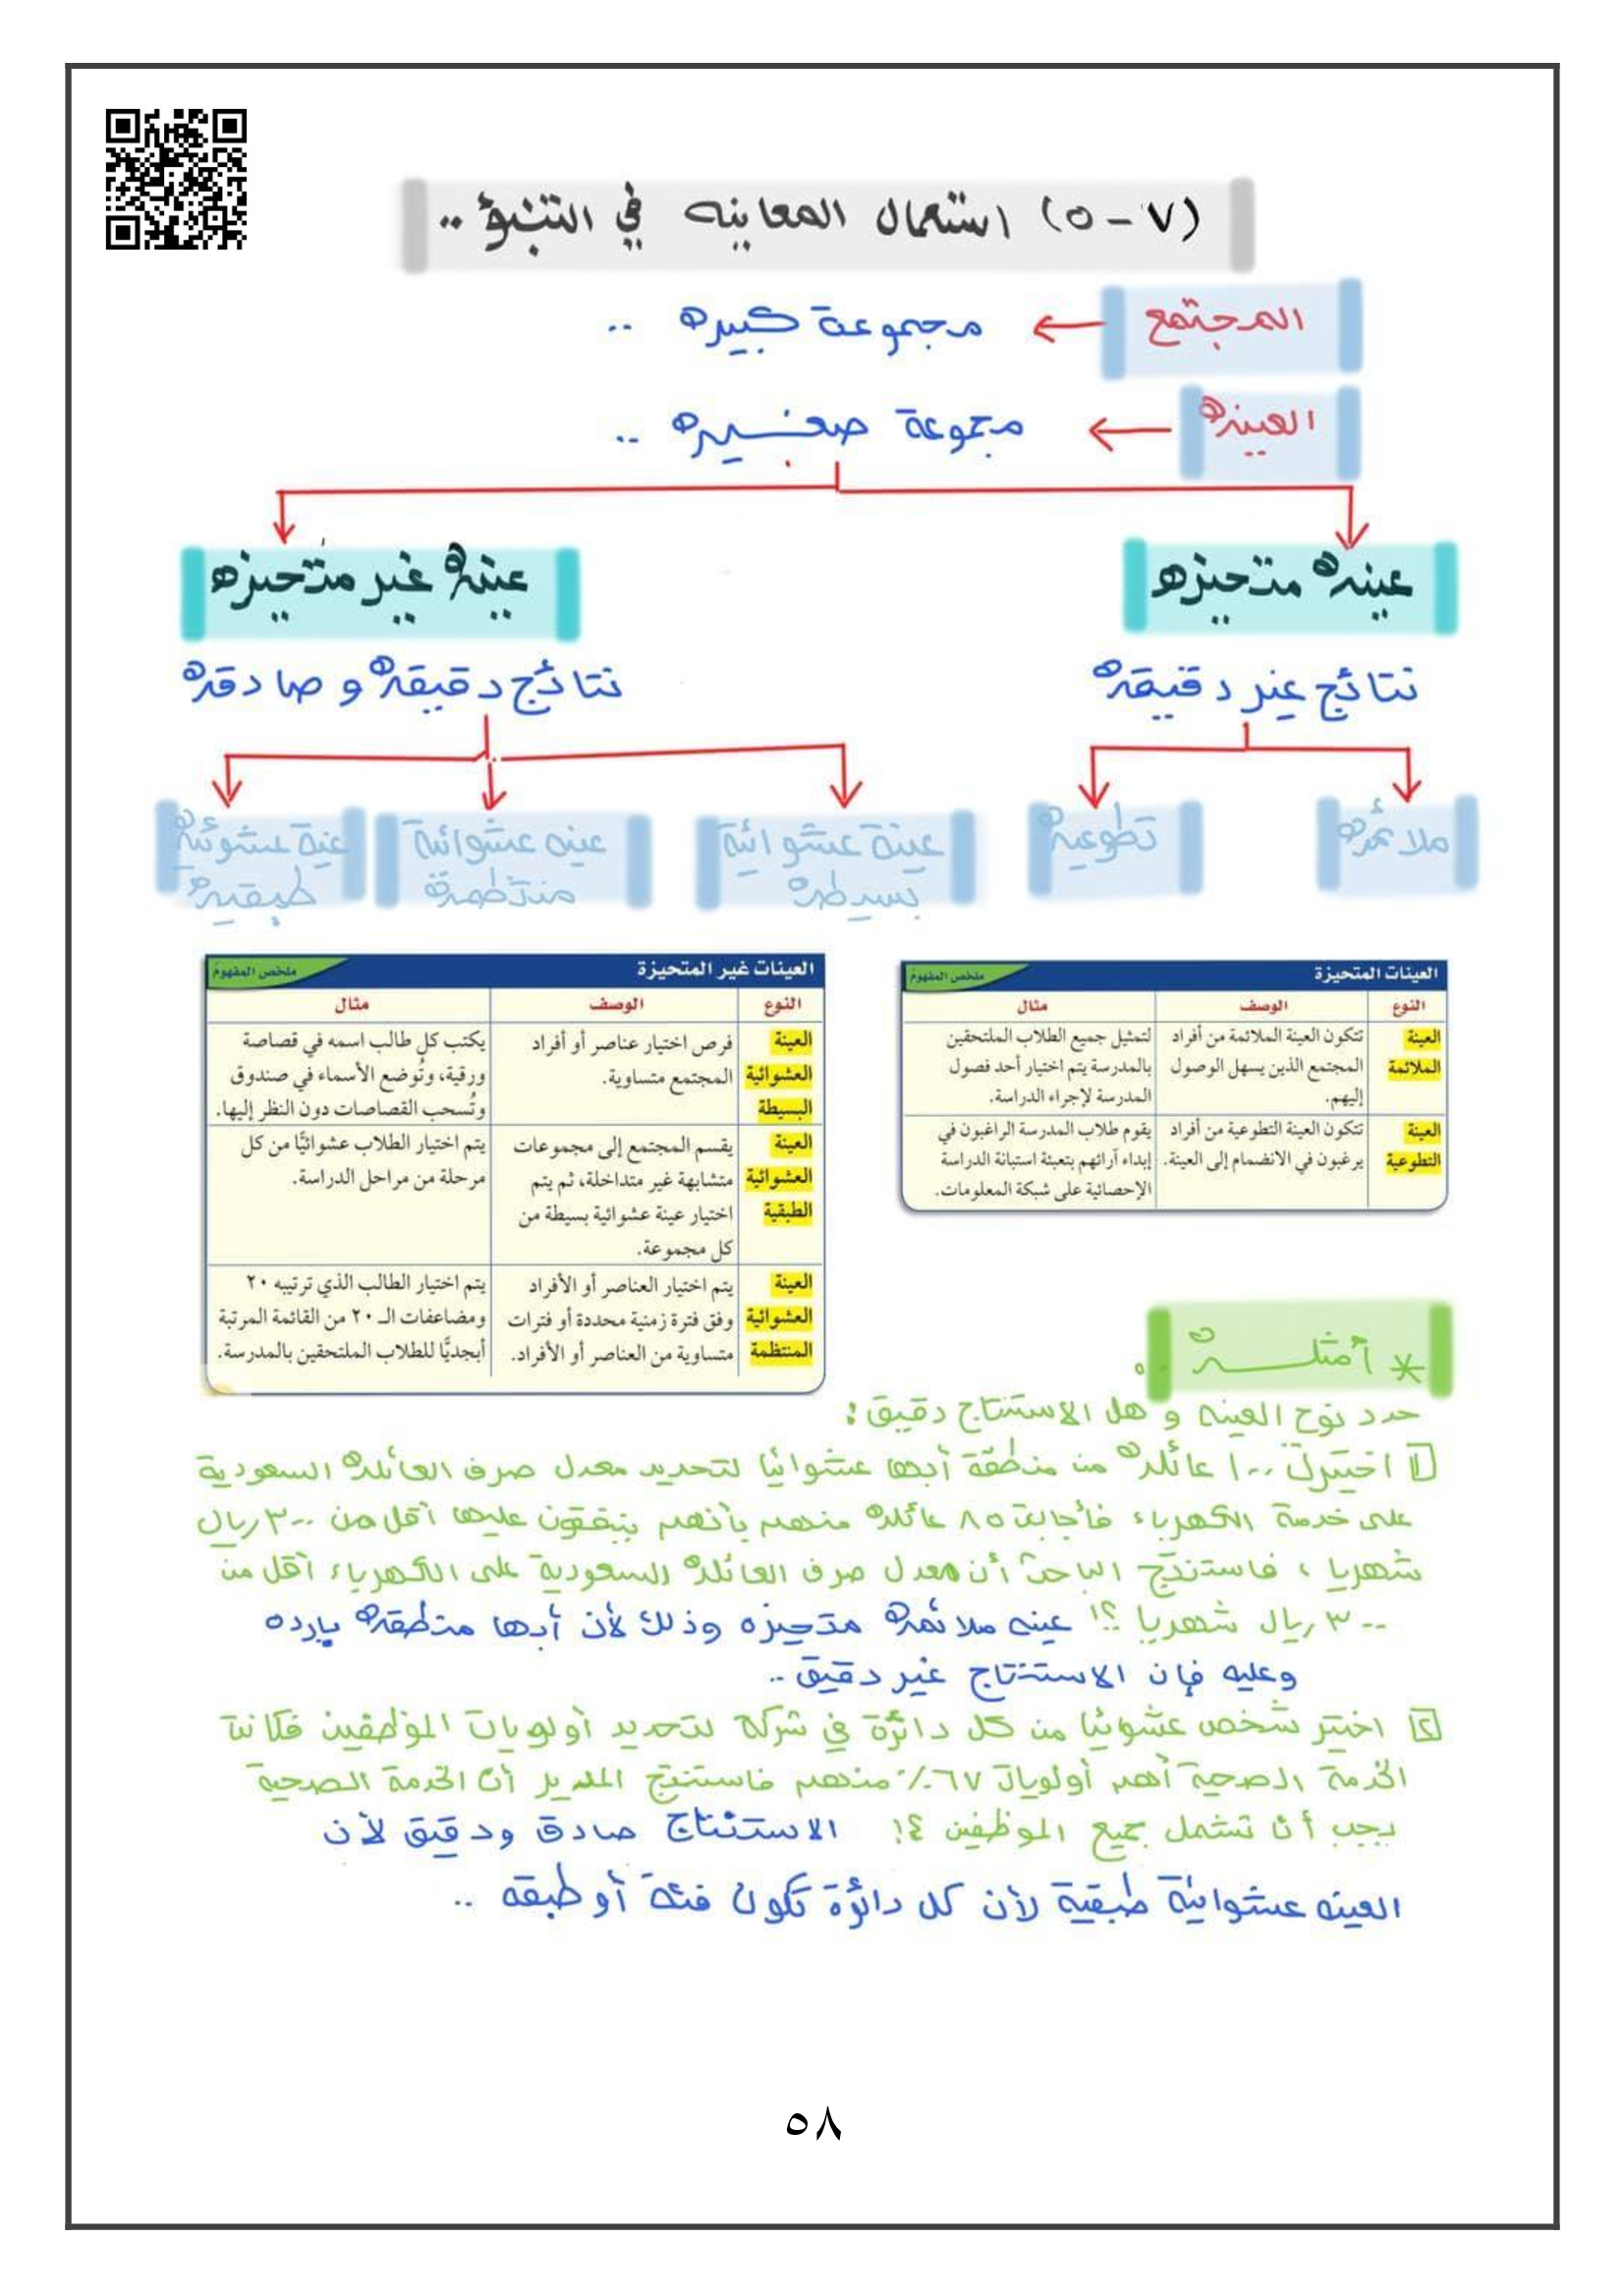 (٧-٥) استعمال المعاينه في التنبؤ ..
المجتمع ← مجموعة كبيره ..
العينه ← مجموعة صغيره ..
عينه متحيزه
عينه غير متحيزه
نتائج غير دقيقه
نتائج دقيقه و صادقه
ملائمه
تطوعيه
عينة عشوائية
بسيطه
عينه عشوائية
منتظمة
عينة عشوائية
طبقيه
العينات المتحيزة
ملخص المفهوم
النوع الوصف مثال
العينة تتكون العينة الملائمة من أفراد لتمثيل جميع الطلاب الملتحقين
الملائمة المجتمع الذين يسهل الوصول بالمدرسة يتم اختيار أحد فصول
إليهم. المدرسة لإجراء الدراسة.
العينة تتكون العينة التطوعية من أفراد يقوم طلاب المدرسة الراغبون في
التطوعية يرغبون في الانضمام إلى العينة. إبداء آرائهم بتعبئة استبانة الدراسة
الإحصائية على شبكة المعلومات.
العينات غير المتحيزة
ملخص المفهوم
النوع الوصف مثال
العينة فرص اختيار عناصر أو أفراد يكتب كل طالب اسمه في قصاصة
العشوائية المجتمع متساوية. ورقية، وتُوضع الأسماء في صندوق
البسيطة وتُسحب القصاصات دون النظر إليها.
العينة يقسم المجتمع إلى مجموعات يتم اختيار الطلاب عشوائيًّا من كل
العشوائية متشابهة غير متداخلة، ثم يتم مرحلة من مراحل الدراسة.
الطبقية اختيار عينة عشوائية بسيطة من
كل مجموعة.
العينة يتم اختيار العناصر أو الأفراد يتم اختيار الطالب الذي ترتيبه ٢٠
العشوائية وفق فترة زمنية محددة أو فترات ومضاعفات الـ ٢٠ من القائمة المرتبة
المنتظمة متساوية من العناصر أو الأفراد. أبجديًّا للطلاب الملتحقين بالمدرسة.
* أمثلـــــة ..
حدد نوع العينه و هل الاستنتاج دقيق :
1 اختيرت ١٠٠ عائله من منطقة أبها عشوائيا لتحديد معدل صرف العائله السعودية
على خدمة الكهرباء فأجابت ٨٥ عائله منهم بأنهم ينفقون عليها أقل من ٣٠٠ ريال
شهريا ، فاستنتج الباحث أن معدل صرف العائله السعودية على الكهرباء أقل من
٣٠٠ ريال شهريا ؟! عينه ملائمه متحيزه وذلك لأن أبها منطقه بارده
وعليه فإن الاستنتاج غير دقيق ..
2 اختير شخص عشوائيا من كل دائرة في شركة لتحديد أولويات الموظفين فكانت
الخدمة الصحية أهم أولويات ٦٧٪ منهم فاستنتج المدير أن الخدمة الصحية
يجب أن تشمل جميع الموظفين ؟! الاستنتاج صادق ودقيق لأن
العينه عشوائية طبقية لأن كل دائرة تكون فئة أو طبقه ..
٥٨